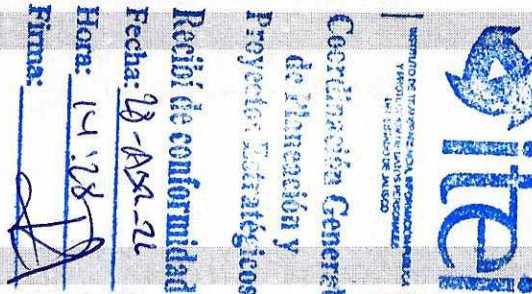 itei
INSTITUTO DE TRANSPARENCIA, INFORMACIÓN PÚBLICA
Y PROTECCIÓN DE DATOS PERSONALES
DEL ESTADO DE JALISCO
Coordinación General
de Planeación y
Proyectos Estratégicos
Recibí de conformidad
Fecha:
Hora: 14:28
Firma: